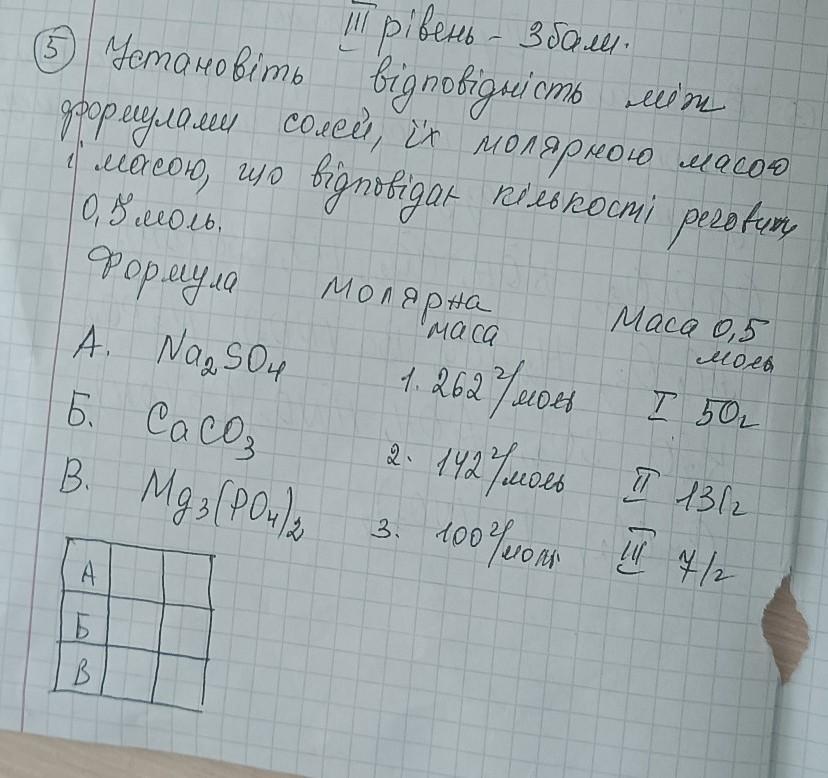 III рівень - 3 бали.
5 Установіть відповідність між
формулами солей, їх молярною масою
і масою, що відповідає кількості речовини
0,5 моль.
Формула Молярна маса Маса 0,5 моль
А. Na2SO4 1. 262 г/моль I 50г
Б. CaCO3 2. 142 г/моль II 131г
В. Mg3(PO4)2 3. 100 г/моль III 71г
А
Б
В